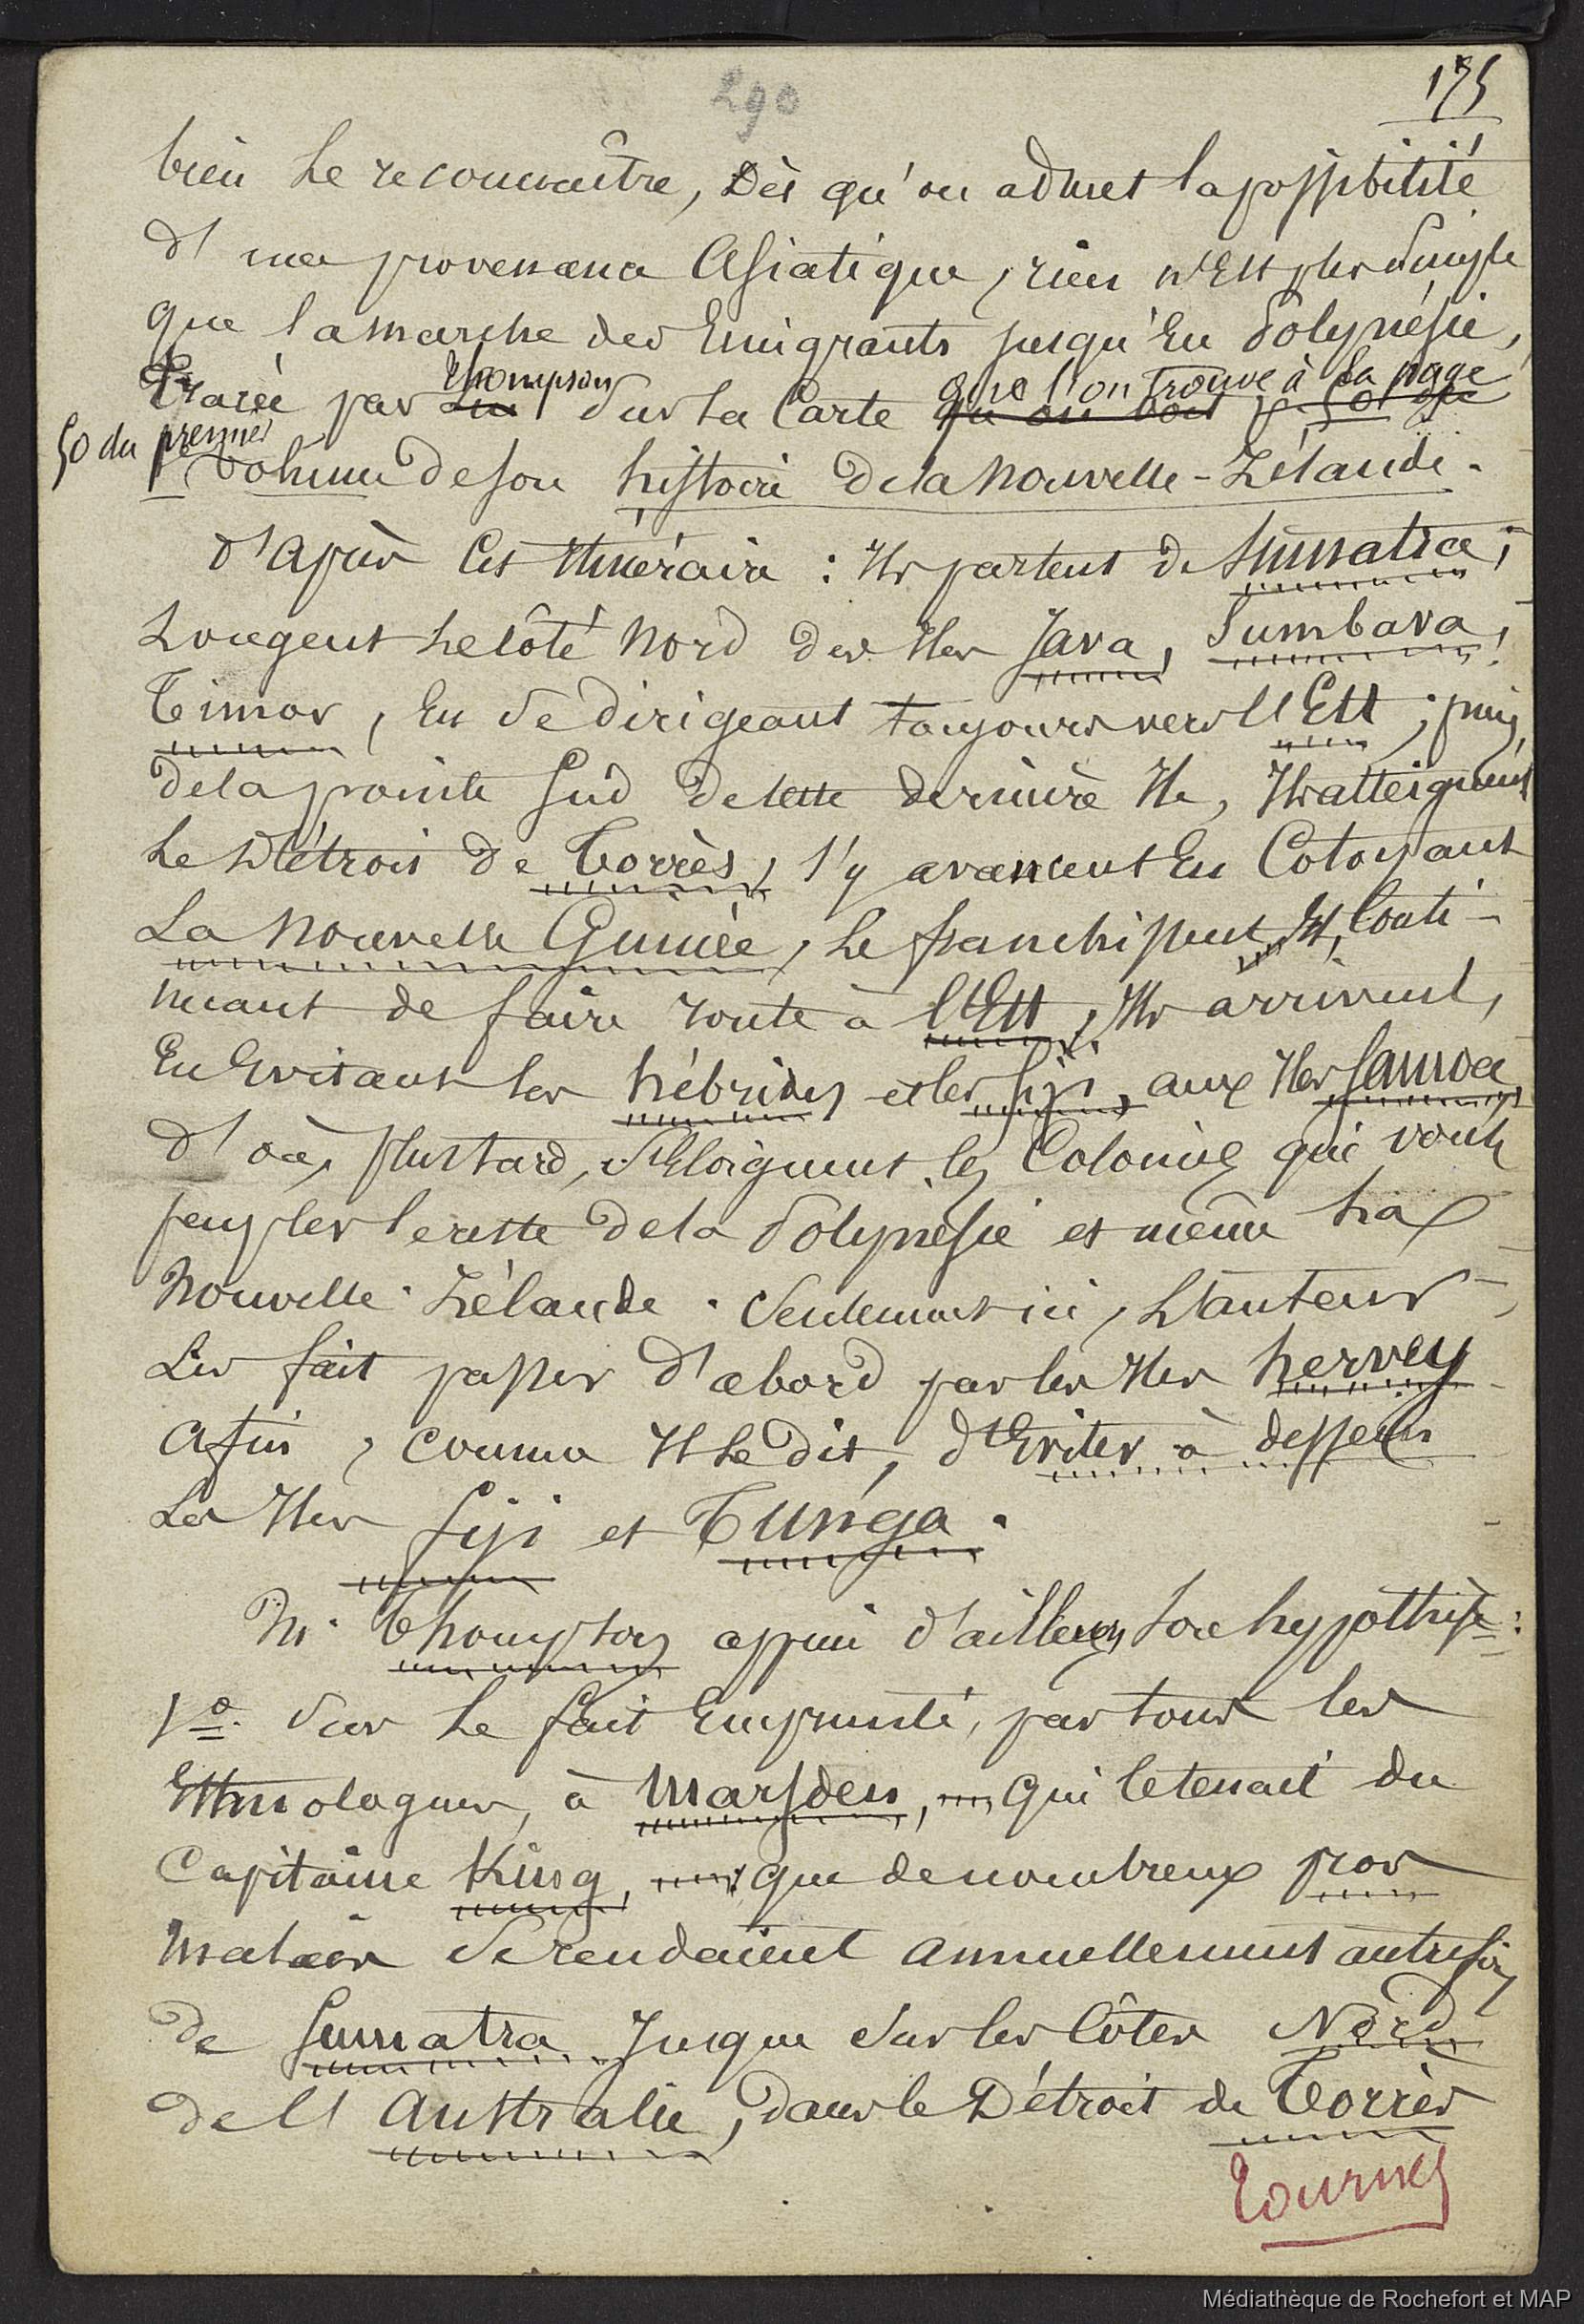 290
175
bien le reconnaître, Dès qu'on admet la possibilité
d'une provenance Asiatique, rien n'Est plus Simple
que la marche des Emigrants jusqu'En Polynésie,
Thompson que l'on trouve à la page
Tracée par lui Sur la Carte qu'on voit p. 50 du
50 du premier
1er Volume de son histoire de la Nouvelle-Zélande.
D'après Cet Itinéraire : Ils partent de Sumatra ;
Longent le côté Nord des Iles Java, Sumbava,
Timor, En Se dirigeant toujours vers l'Est ; puis,
de la pointe Sud de cette dernière Ile, Ils atteignent
le Détroit de Torrès, s'y avancent En Cotoyant
La Nouvelle Guinée, le franchissent, Et, Conti-
nuant de faire route à l'Est, Ils arrivent,
En Evitant les hébrides et les fiji, aux Iles Samoa,
d'où, plus tard, S'Eloignent les Colonies qui vont
peupler le reste de la Polynésie et même la
Nouvelle-Zélande. Seulement ici, L'auteur
Les fait passer d'abord par les Iles hervey
Afin, comme Il le dit, d'Eviter à dessein
Les Iles fiji et Tunga.
M. Thompson appuie d'ailleurs son hypothèse :
1o. Sur le fait Emprunté, par tous les
Ethnologues, à Marsden, qui le tenait du
Capitaine King, que de nombreux pros
Malais Se rendaient annuellement autrefois
de Sumatra jusque Sur les Côtes Nord
de l'Australie, dans le Détroit de Torrès
Tournez
Médiathèque de Rochefort et MAP